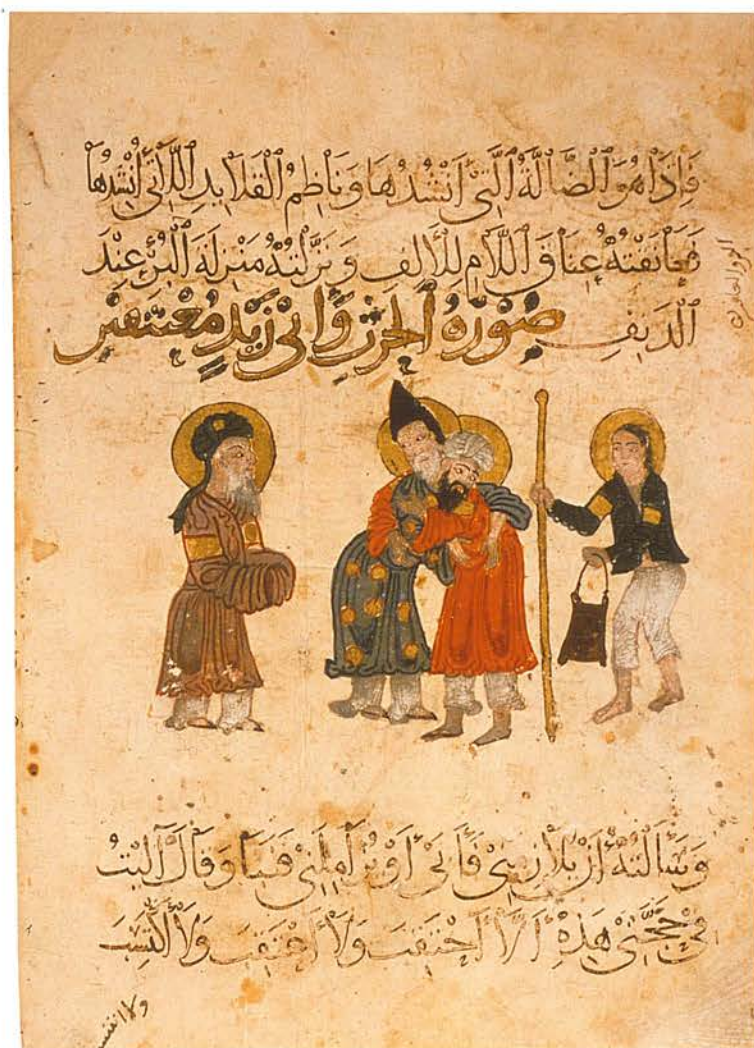 فَإِذَا هُوَ ٱلضَّالَّةُ ٱلَّتِي أَنْشُدُهَا وَنَاظِمُ ٱلْقَلَايِدِ ٱللَّاتِي أُنْشِدُهَا
فَعَانَقْتُهُ عِنَاقَ ٱللَّامِ لِلْأَلِفِ وَنَزَّلْتُهُ مَنْزِلَةَ ٱلْبُرْءِ عِنْدَ
ٱلدَّنِفِ صُورَةُ ٱلْحَرْثِ وَأَبِي زَيْدٍ مُعْتَنِقَيْنِ
وَسَأَلْتُهُ أَنْ يُلَازِمَنِي فَأَبَى أَوْ يُزَامِلَنِي فَنَبَا وَقَالَ آلَيْتُ
فِي حَجَّتِي هَذِهِ أَنْ لَا أَحْتَقِبَ وَلَا أَعْتَقِبَ وَلَا أَكْتَسِبَ
ولا انتسب